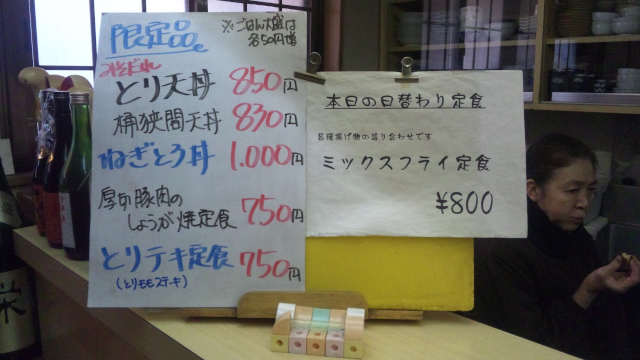 限定品。
※ごはん大盛は
各50円増
みそだれ
とり天丼 850円
桶狭間天丼 830円
ねぎとろ丼 1.000円
厚切豚肉の
しょうが焼定食 750円
とりテキ定食 750円
(とりモモステーキ)
本日の日替わり定食
各種揚げ物の盛り合わせです
ミックスフライ定食
¥800
栄